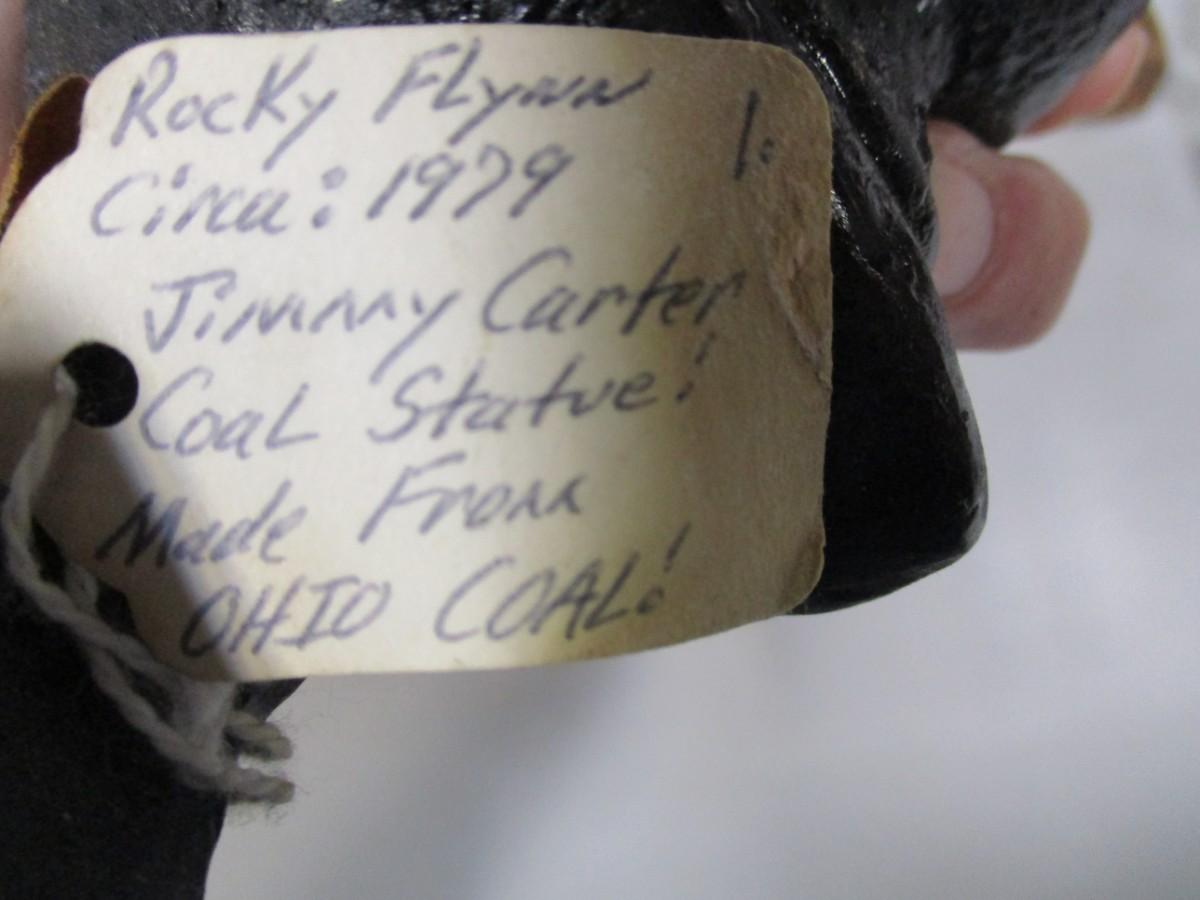 Rocky Flynn
1.
Circa: 1979
Jimmy Carter
Coal Statue!
Made From
OHIO COAL!